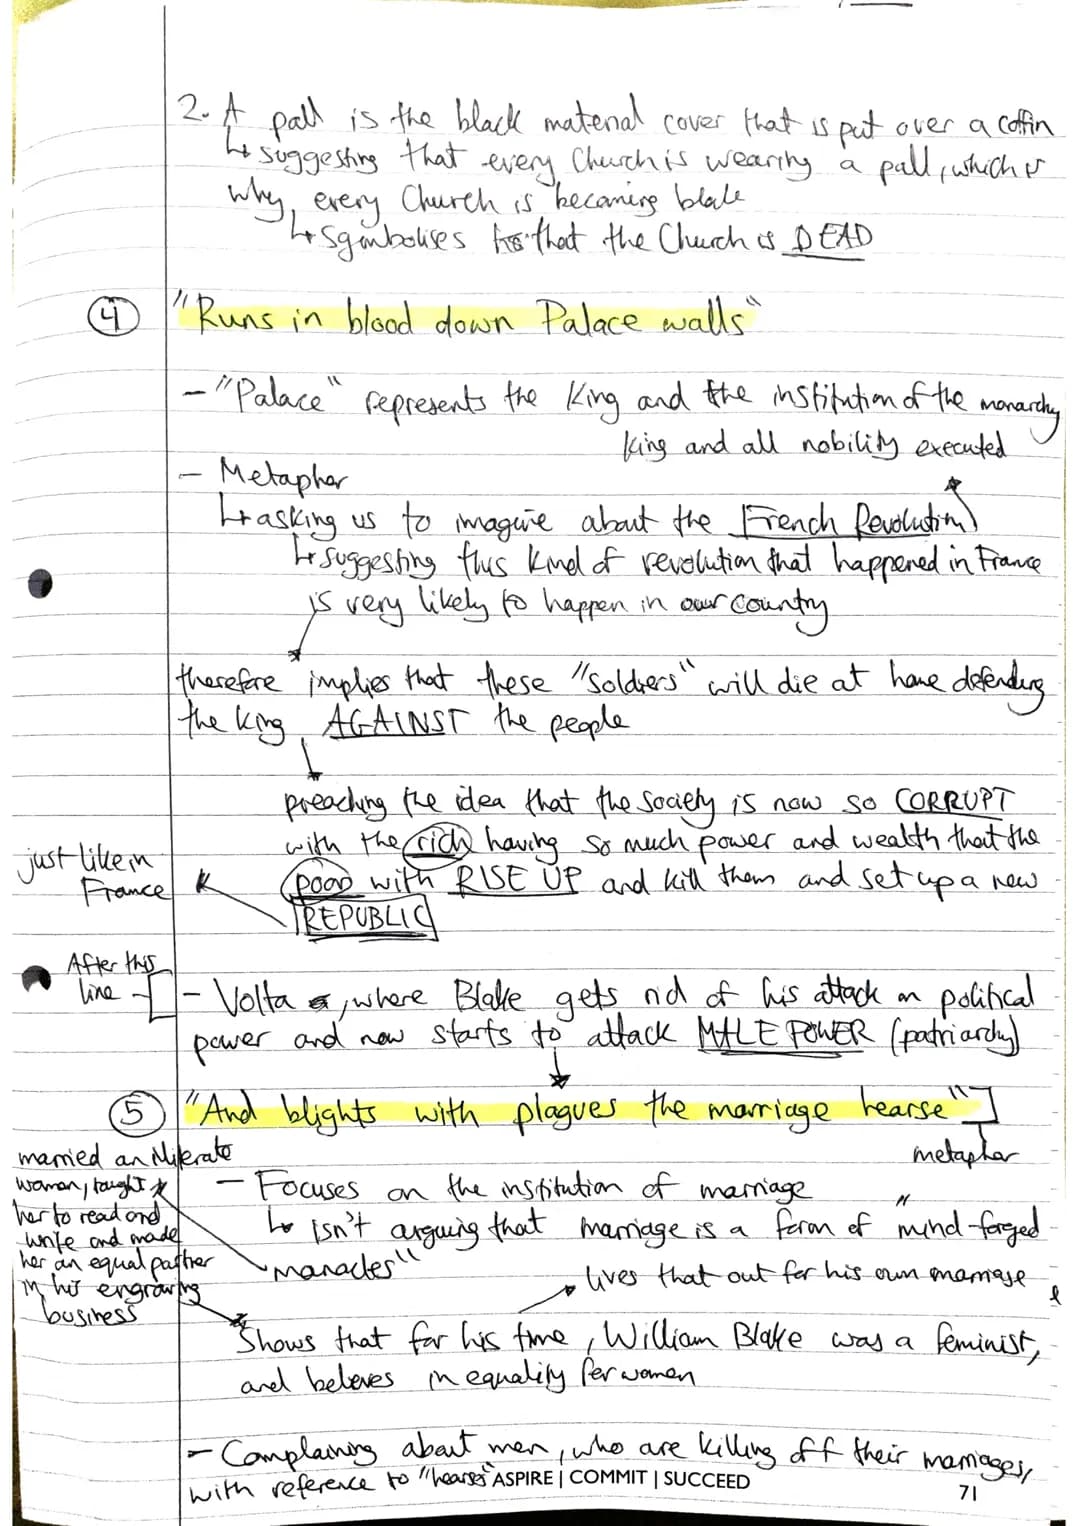 2. A pall is the black material cover that is put over a coffin
↳ suggesting that every Church is wearing a pall, which is
why every Church is becoming blak
↳ Symbolises that the Church is DEAD
④ "Runs in blood down Palace walls"
- "Palace" represents the King and the institution of the monarchy
King and all nobility executed
- Metaphor
↳ asking us to imagine about the French Revolution
↳ suggesting this kind of revolution that happened in France
is very likely to happen in our country
therefore implies that these "soldiers" will die at home defending
the king AGAINST the people
preaching the idea that the society is now so CORRUPT
with the rich having so much power and wealth that the
just like in
France
poor with RISE UP and kill them and set up a new
REPUBLIC
After this
line
- Volta, where Blake gets rid of his attack on political
power and now starts to attack MALE POWER (patriarchy)
⑤ "And blights with plagues the marriage hearse"
metaphor
married an illiterate
woman, taught
her to read and
write and made
her an equal partner
in his engraving
business
- Focuses on the institution of marriage
↳ isn't arguing that marriage is a form of "mind-forged
manacles"
lives that out for his own marriage
Shows that for his time, William Blake was a feminist,
and believes in equality for women
- Complaining about men, who are killing off their marriages,
with reference to "hearse"
ASPIRE | COMMIT | SUCCEED
71